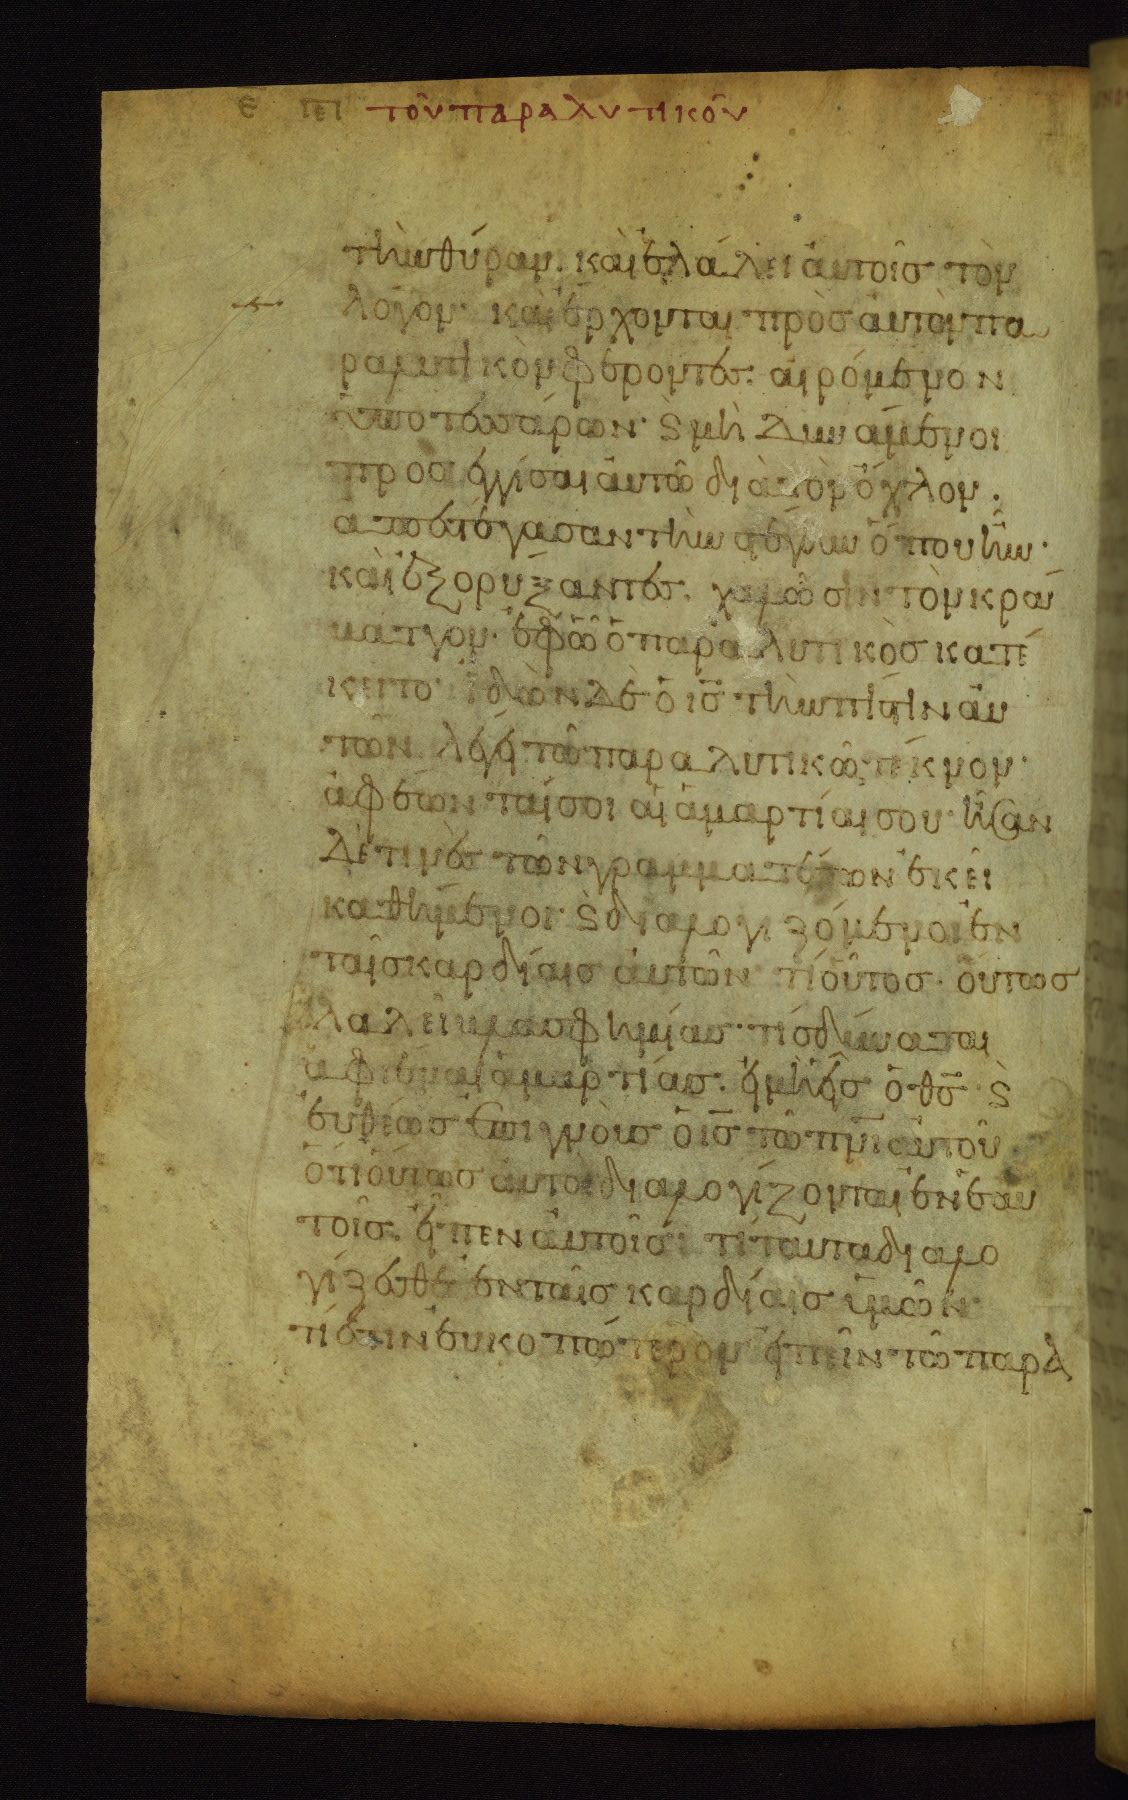 ε πει τοῦ παραλυτικοῦ
τὴν θύραν. καὶ ἐλάλει αὐτοῖς τὸν
λόγον. καὶ ἔρχονται πρὸς αὐτὸν πα
ραλυτικὸν φέροντες. αἰρόμενον
ὑπο τεσσάρων. ϗ μὴ δυνάμενοι
προσεγγίσαι αὐτῶ διὰ τὸν ὄχλον.
απεστέγασαν τὴν στέγην ὅπου ἦν.
καὶ ἐξορύξαντες. χαλῶσιν τὸν κράβ
βατγον. ἐφ ὧ ὁ παραλυτικὸς κατέ
κειτο. ἰδὼν δὲ ὁ ις τὴν πίστιν αὐ
τῶν λέγει τῶ παραλυτικῶ. τέκνον.
ἀφέωνταί σοι αἱ ἁμαρτίαι σου. ἦσαν
δέ τινες τῶν γραμματέων ἐκεῖ
καθήμενοι. ϗ διαλογιζόμενοι ἐν
ταῖς καρδίαις αὐτῶν τί οὗτος. οὕτως
λαλεῖ βλασφημίας. τίς δύναται
ἀφιέναι ἁμαρτίας. εἰ μὴ εἷς ὁ θς ϗ
εὐθέως ἐπιγνοὺς ὁ ις τῶ πνι αὐτοῦ
ὅτι οὕτως αὐτοὶ διαλογίζονται ἐν ἑαυ
τοῖς. εἶπεν αὐτοῖς. τί ταῦτα διαλο
γίζεσθε ἐν ταῖς καρδίαις ὑμῶν.
τί ἐστιν εὐκοπώτερον εἰπεῖν τῶ παρα